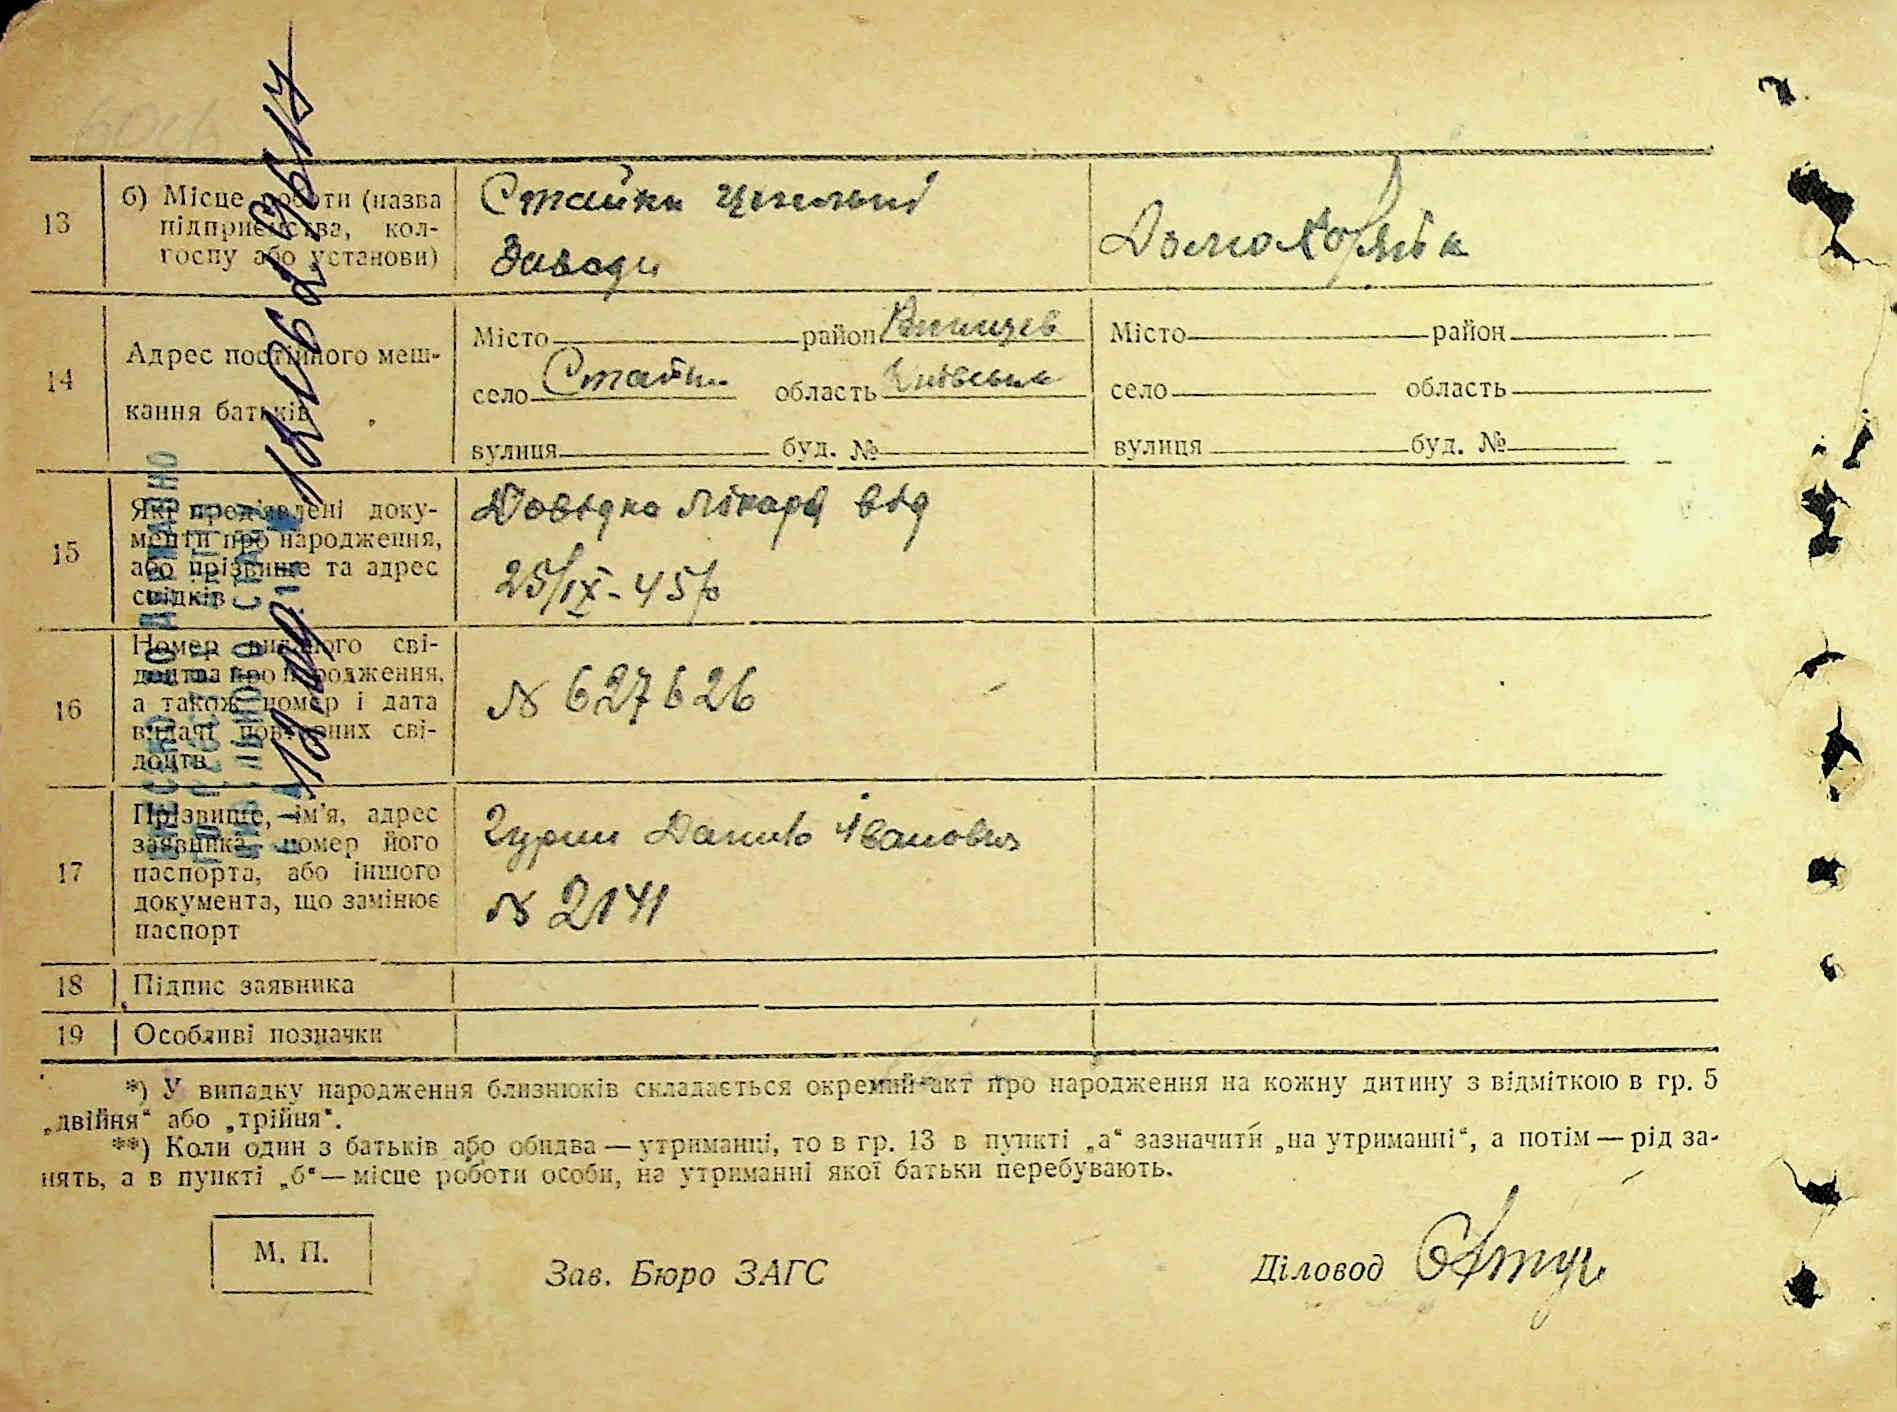 13
б) Місце роботи (назва
підприємства, кол-
госпу або установи)
Стайки цегельні
Заводи
Домохозяйка
14
Адрес постійного меш-
кання батьків
Місто район
село Стайки область Київська
вулиця буд. №
Місто район
село область
вулиця буд. №
15
Які пред'явлені доку-
менти про народження,
або прізвище та адрес
свідків
Довідка лікаря від
25/IX-45р
16
Номер виданого сві-
доцтва про народження,
а також номер і дата
видачі повторних сві-
доцтв
№ 627626
17
Прізвище, ім'я, адрес
заявника, номер його
паспорта, або іншого
документа, що замінює
паспорт
Данило Іванович
№ 2141
18
Підпис заявника
19
Особливі позначки
*) У випадку народження близнюків складається окремий акт про народження на кожну дитину з відміткою в гр. 5
„двійня“ або „трійня“.
**) Коли один з батьків або обидва — утриманці, то в гр. 13 в пункті „а“ зазначити „на утриманні“, а потім — рід за-
нять, а в пункті „б“ — місце роботи особи, на утриманні якої батьки перебувають.
М. П.
Зав. Бюро ЗАГС
Діловод
ВНЕСЕНО ДО ДЕРЖАВНОГО